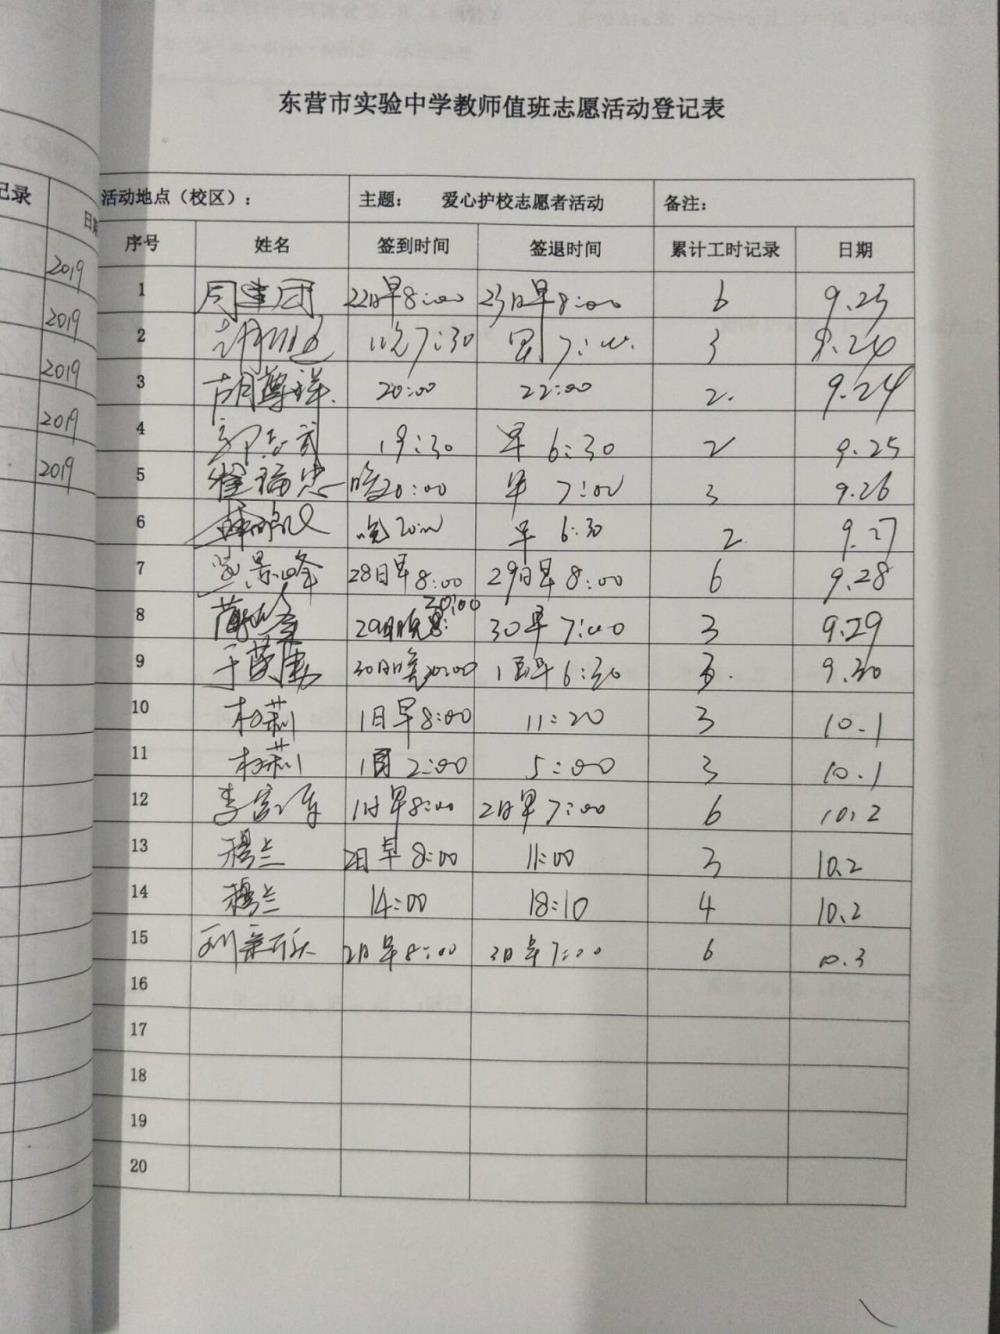 东营市实验中学教师值班志愿活动登记表
记录 日期
2019
2019
2019
2019
2019
活动地点（校区）： 主题： 爱心护校志愿者活动 备注：
序号 姓名 签到时间 签退时间 累计工时记录 日期
1 周建团 22日早8:00 23日早8:00 6 9.23
2 晚7:30 早7:00. 3 9.24
3 胡尊祥 20:00 22:00 2. 9.24
4 19:30 早 6:30 2 9.25
5 崔福忠 晚20:00 早 7:00 3 9.26
6 晚20:00 早 6:30 2 9.27
7 景峰 28日早8:00 29日早8:00 6 9.28
8 29日晚 20:00 30早7:00 3 9.29
9 于 30日晚20:00 1日早6:30 3. 9.30
10 杨莉 1日早8:00 11:20 3 10.1
11 杨莉 1日 2:00 5:00 3 10.1
12 李 1日早8:00 2日早7:00 6 10.2
13 穆兰 2日早8:00 11:00 3 10.2
14 穆兰 14:00 18:10 4 10.2
15 2日早8:00 3日早7:00 6 10.3
16
17
18
19
20